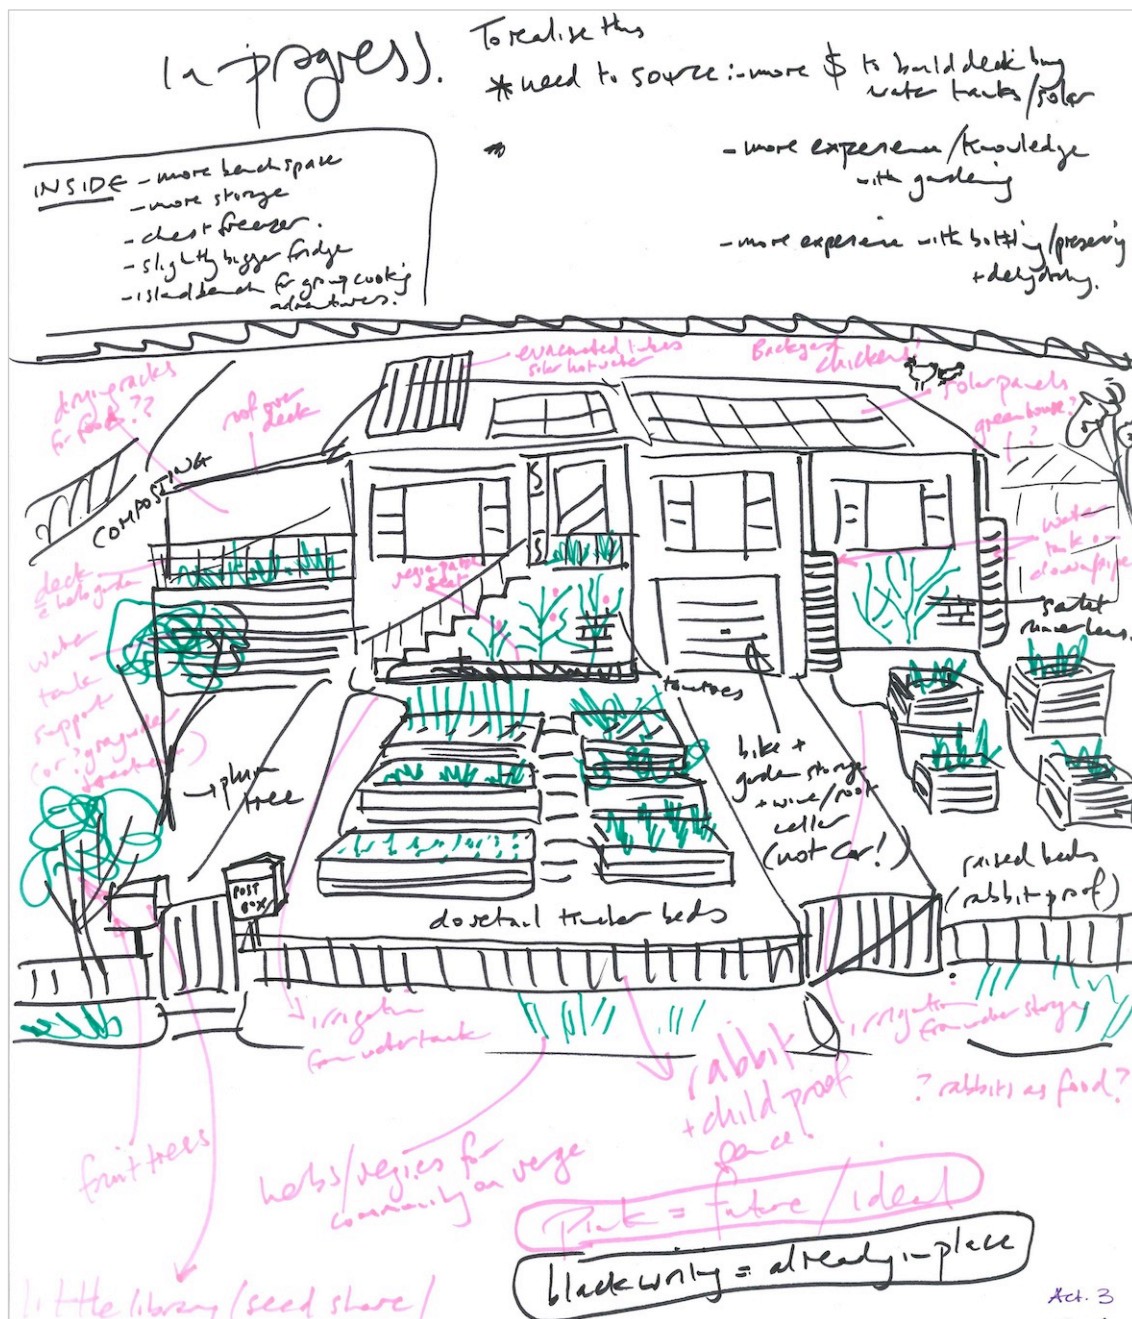 In progress.
To realise this
* need to source :- more $ to build deck buy
water tanks/solar
- more experience/knowledge
with gardening
- more experience with bottling/preserving
+ dehydrating.
INSIDE - more benchspace
- more storage
- chest freezer.
- slightly bigger fridge
- island bench for group cooking
adventures.
drying racks
for food??
roof over
deck
evacuated tubes
solar hot water
Backyard
chickens!
solar panels
greenhouse?
?
COMPOSTING
deck
water
tank
support
(or ? greywater
treatment)
vegie patch
seat
water
tank
downpipe
tomatoes
plum
tree
bike +
garden storage
+ wine/root
cellar
(not car!)
POST
BOX
dovetail timber beds
raised beds
(rabbit proof)
irrigation
from water tank
irrigation
from water storage
rabbit
+ child proof
fence.
? rabbits as food?
fruit trees
herbs/vegies for
community on verge
Pink = future / ideal
black writing = already in place
little library / seed share /
Act. 3